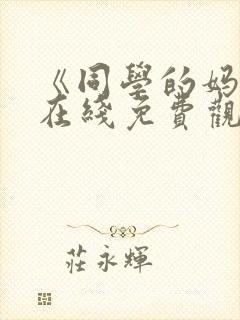 《同學的媽
在綫免費觀
莊永輝